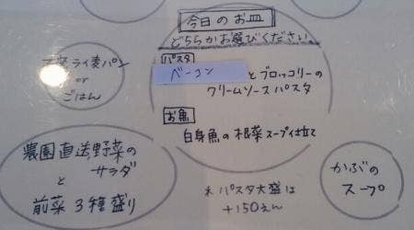 今日のお皿
どちらかお選びください
パスタ
ベーコン とブロッコリーの
クリームソースパスタ
お魚
白身魚の根菜スープ仕立て
ライ麦パン
or
ごはん
農園直送野菜の
サラダ
と
前菜3種盛り
かぶの
スープ
※パスタ大盛は
+150えん